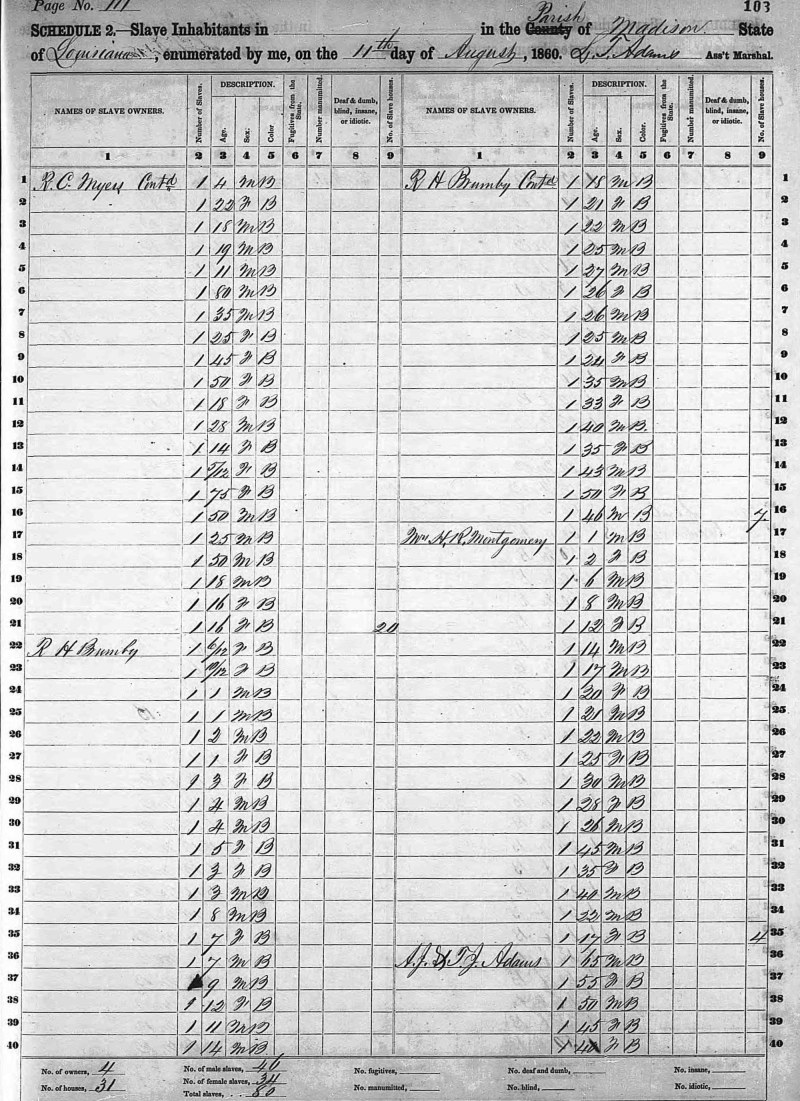 Page No. 111
103
SCHEDULE 2.—Slave Inhabitants in in the County Parish of Madison State
of Louisiana, enumerated by me, on the 11th day of August, 1860. Adams Ass't Marshal.
NAMES OF SLAVE OWNERS. Number of Slaves. DESCRIPTION. Age. Sex. Color. Fugitives from the State. Number manumitted. Deaf & dumb, blind, insane, or idiotic. No. of Slave houses. NAMES OF SLAVE OWNERS. Number of Slaves. DESCRIPTION. Age. Sex. Color. Fugitives from the State. Number manumitted. Deaf & dumb, blind, insane, or idiotic. No. of Slave houses.
1 2 3 4 5 6 7 8 9 1 2 3 4 5 6 7 8 9
1 R. C. Myers Contd 1 4 M B R H Brumby Contd 1 18 M B 1
2 1 22 F B 1 21 F B 2
3 1 18 M B 1 22 M B 3
4 1 19 M B 1 25 M B 4
5 1 11 M B 1 27 M B 5
6 1 80 M B 1 26 F B 6
7 1 35 M B 1 26 M B 7
8 1 25 F B 1 25 M B 8
9 1 45 F B 1 24 F B 9
10 1 50 F B 1 35 M B 10
11 1 18 F B 1 33 F B 11
12 1 28 M B 1 40 M B 12
13 1 14 F B 1 35 F B 13
14 1 /12 F B 1 43 M B 14
15 1 75 F B 1 50 F B 15
16 1 50 M B 1 46 M B 7 16
17 1 25 M B Mrs H. R. Montgomery 1 1 M B 17
18 1 50 M B 1 2 F B 18
19 1 18 M B 1 6 M B 19
20 1 16 F B 1 8 M B 20
21 1 16 F B 20 1 12 F B 21
22 R H Brumby 1 6/12 F B 1 14 M B 22
23 1 /12 F B 1 17 M B 23
24 1 1 M B 1 20 F B 24
25 1 1 M B 1 21 M B 25
26 1 2 M B 1 22 M B 26
27 1 1 F B 1 25 F B 27
28 1 3 F B 1 30 M B 28
29 1 4 M B 1 28 F B 29
30 1 4 M B 1 26 M B 30
31 1 5 F B 1 45 M B 31
32 1 3 F B 1 35 F B 32
33 1 3 M B 1 40 M B 33
34 1 8 M B 1 22 M B 34
35 1 7 F B 1 17 F B 4 35
36 1 7 M B A. J. & T. J. Adams 1 65 M B 36
37 9 M B 1 55 F B 37
38 1 12 F B 1 50 M B 38
39 1 11 M B 1 45 F B 39
40 1 14 M B 1 40 F B 40
No. of owners, 4 No. of male slaves, 46 No. fugitives, No. deaf and dumb, No. insane,
No. of houses, 31 No. of female slaves, 34 No. manumitted, No. blind, No. idiotic,
Total slaves, 80